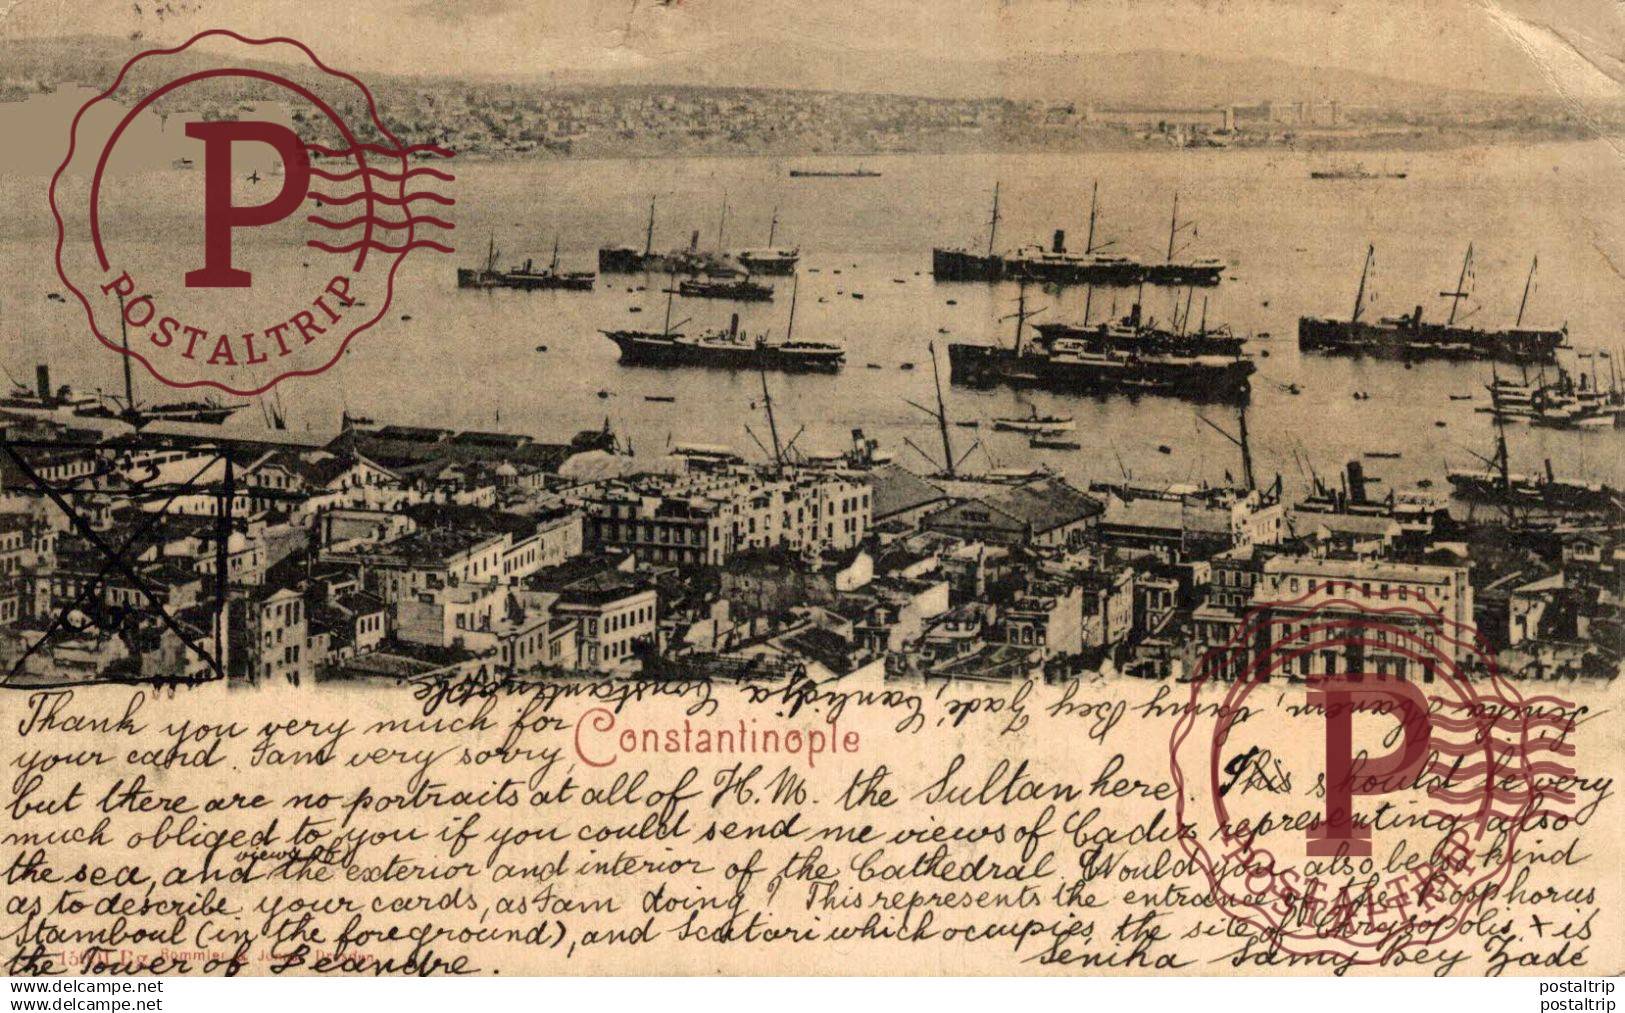 POSTALTRIP
Constantinople
Séniha Hanem, Samy Bey Zadé, Canlidja, Constantinople.
Thank you very much for
your card. I am very sorry,
but there are no portraits at all of H.M. the Sultan here. This should be very
much obliged to you if you could send me views of Cadiz representing also
the sea, and views of the exterior and interior of the Cathedral. Would you also be so kind
as to describe your cards, as I am doing? This represents the entrance of the Bosphorus
Stamboul (in the foreground), and Scutari which occupies the site of Chrysopolis, + is
the Tower of Leandre.
Séniha Samy Bey Zadé
Dresden
POSTALTRIP
www.delcampe.net
www.delcampe.net
postaltrip
postaltrip